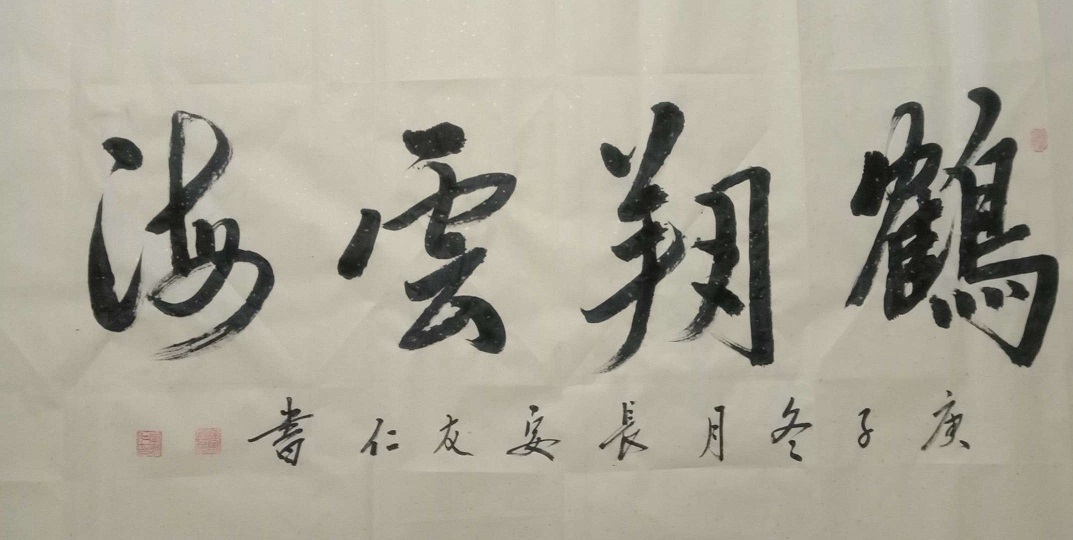 鶴翔雲海
庚子冬月長安友仁書